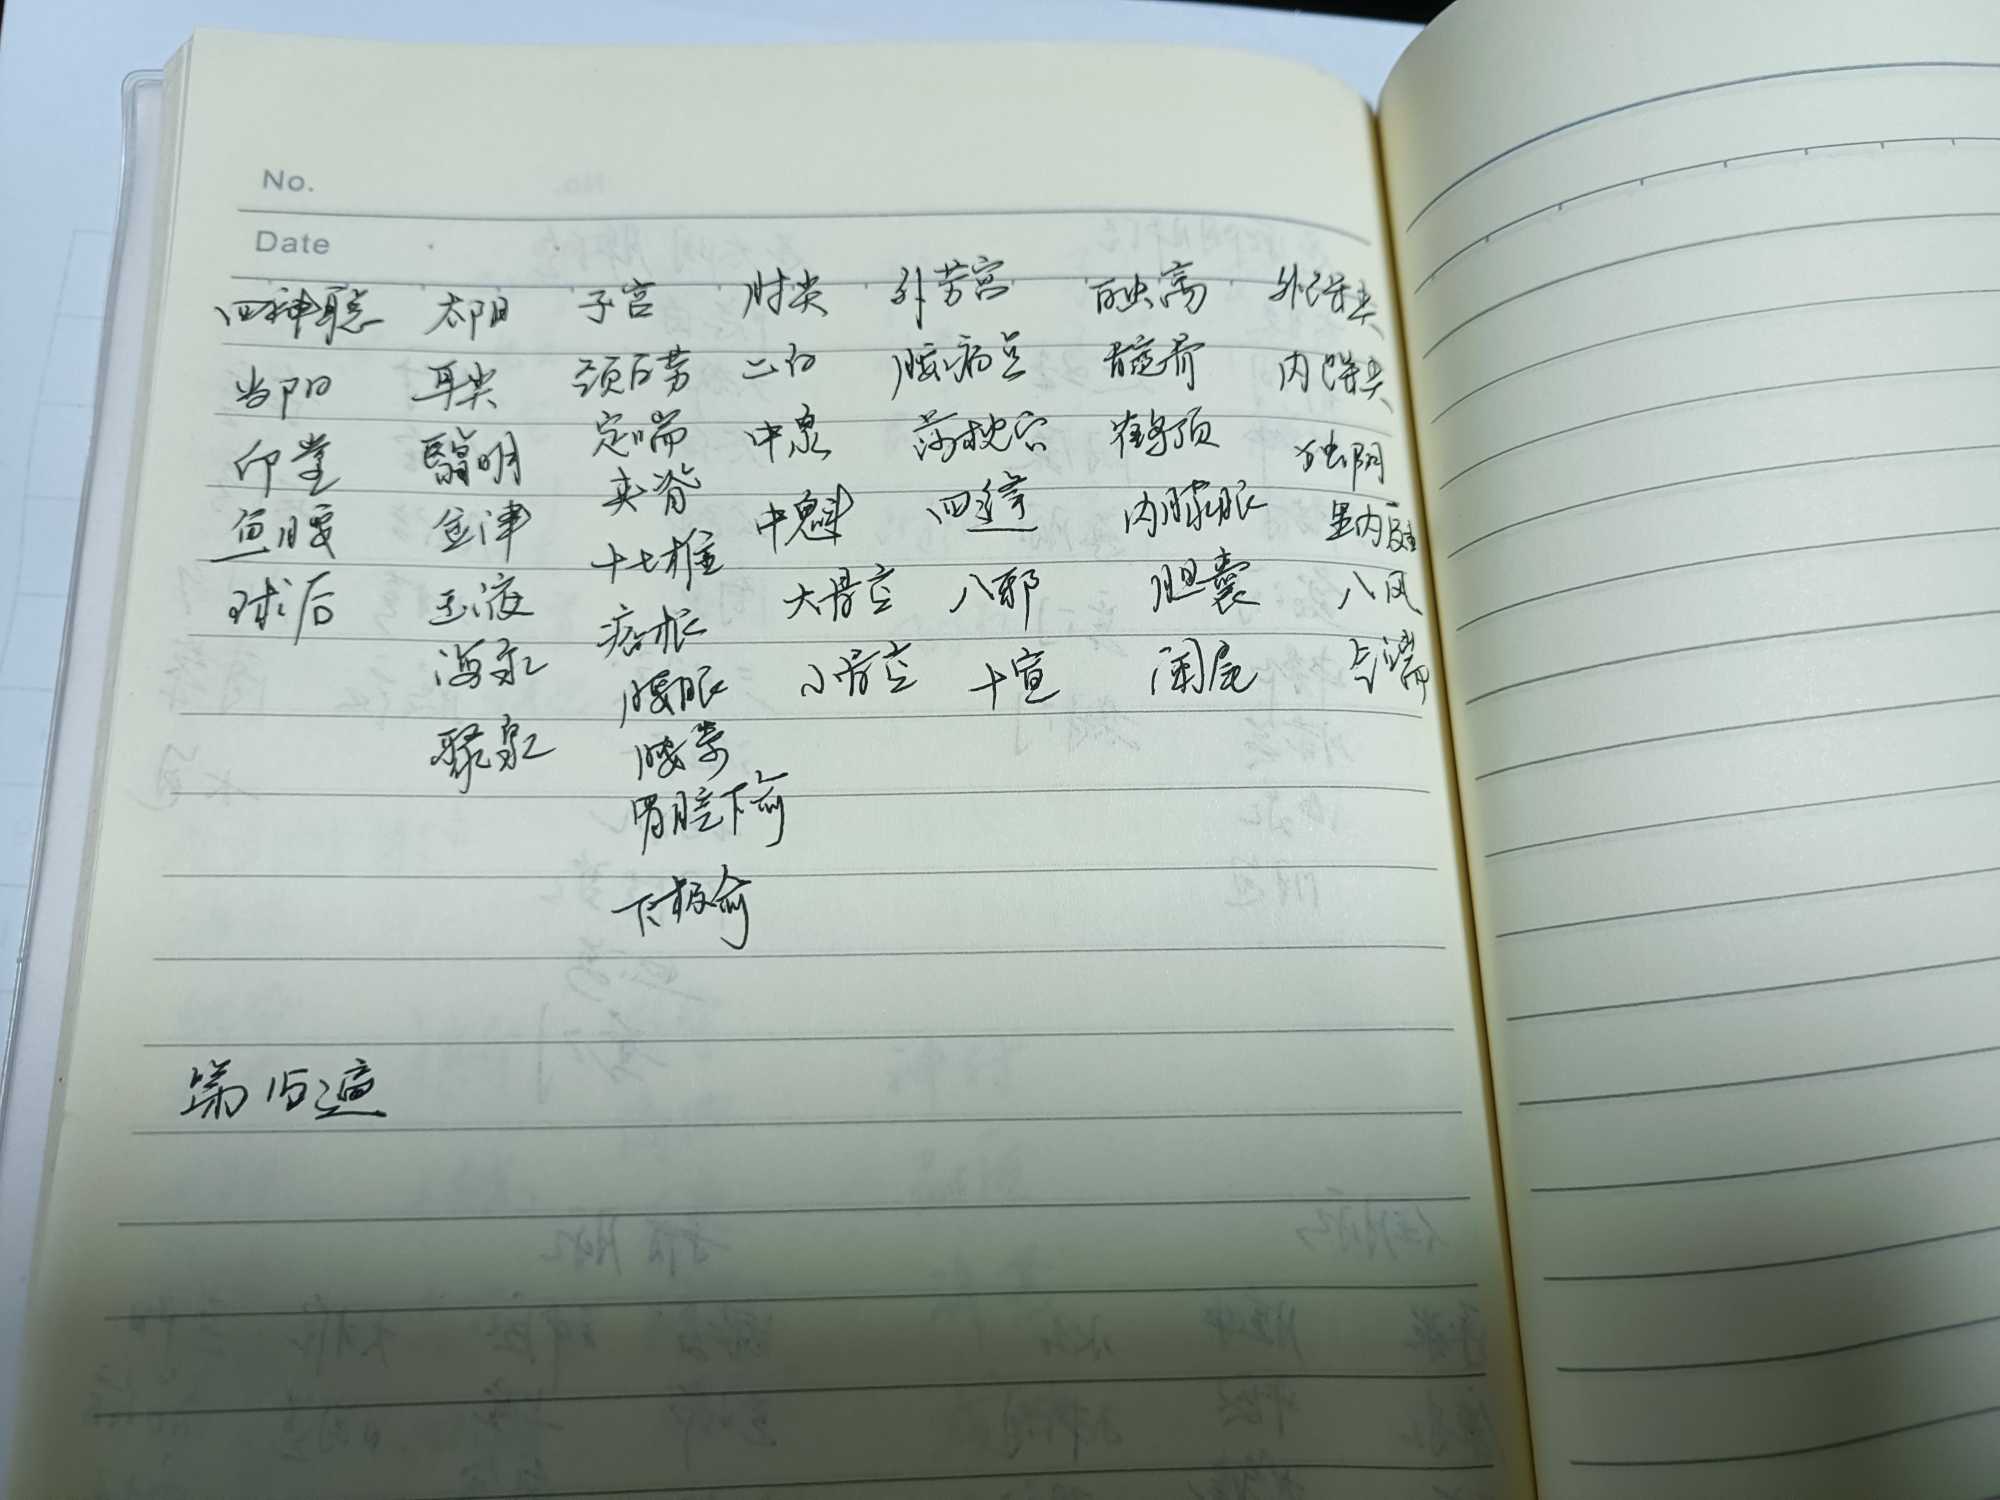 No.
Date
四神聪 太阳 子宫 肘尖 外劳宫 百虫窝 外踝尖
当阳 耳尖 颈百劳 二白 腰痛点 髋骨 内踝尖
印堂 翳明 定喘 中泉 落枕穴 鹤顶 独阴
鱼腰 金津 夹脊 中魁 四缝 内膝眼 里内庭
球后 玉液 十七椎 大骨空 八邪 胆囊 八风
海泉 痞根 小骨空 十宣 阑尾 气端
聚泉 腰眼
腰宜
胃脘下俞
下极俞
第15遍